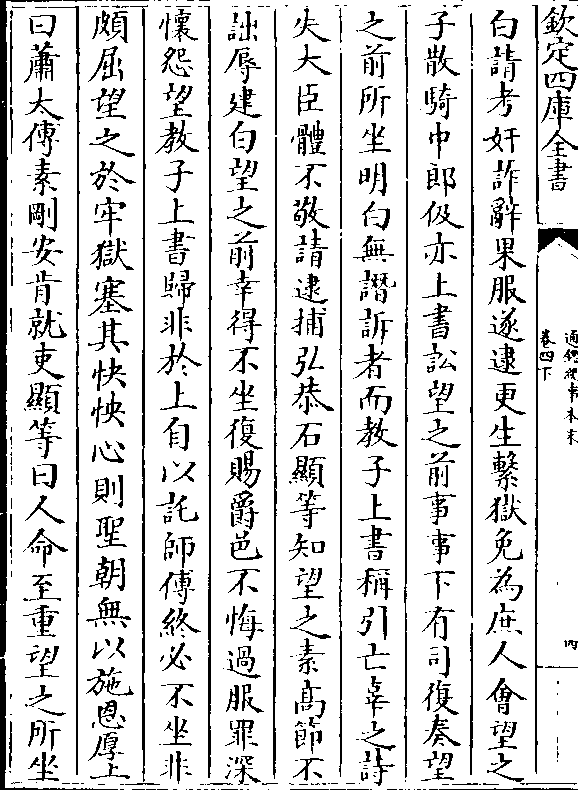 欽定四庫全書
通鑑紀事本末
卷四下
四
白請考奸詐辭果服遂逮更生繫獄免為庶人會望之
子散騎中郎伋亦上書訟望之前事事下有司復奏望
之前所坐明白無譖訴者而教子上書稱引亡辜之詩
失大臣體不敬請逮捕弘恭石顯等知望之素髙節不
詘辱建白望之前幸得不坐復賜爵邑不悔過服罪深
懷怨望教子上書歸非於上自以託師傅終必不坐非
頗屈望之於牢獄塞其怏怏心則聖朝無以施恩厚上
曰蕭太傅素剛安肯就吏顯等曰人命至重望之所坐